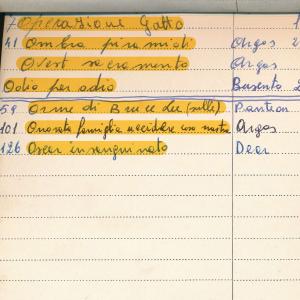 7 Operazione Gatto 1
41 Ombra piramidi Argos 2
Overt sacramento Argos
Odio per odio Busento 2
59 Orme di Bruce Lee (sulle) Panteon
101 Onorata famiglia uccidere cosa nostra Argos
126 Oscar insanguinato Dear